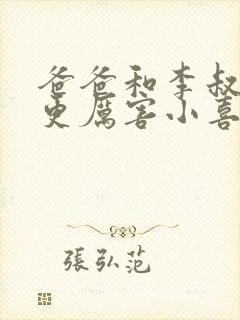 爸爸和李叔
更厲害小喜
張弘范